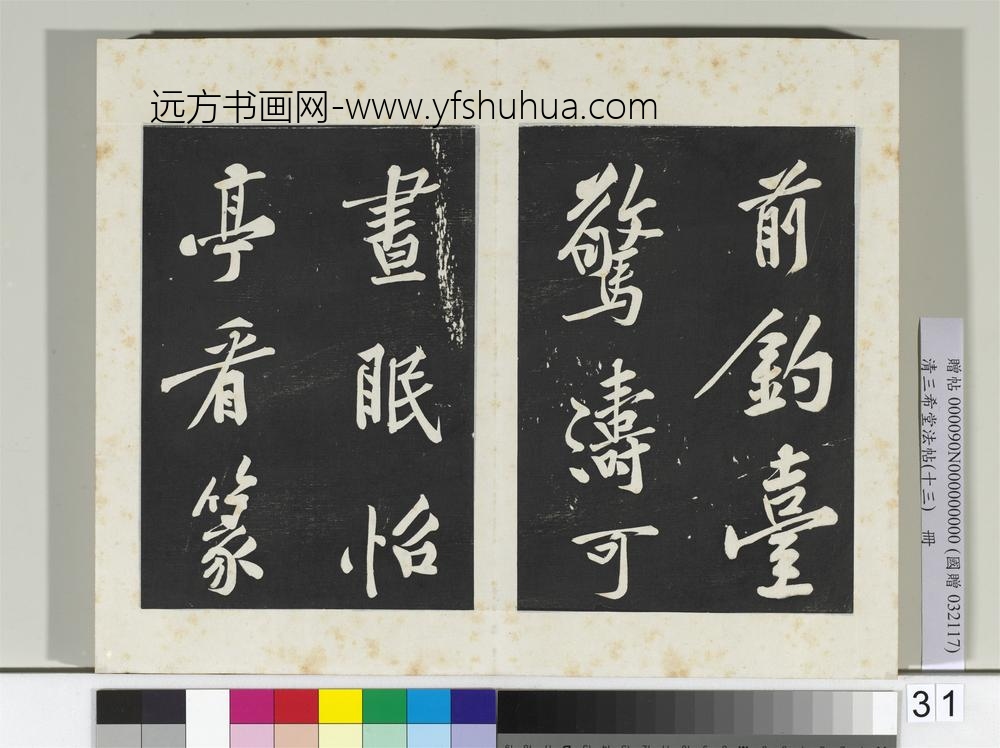 远方书画网-www.yfshuhua.com
前釣臺
驚濤可
晝眠怡
亭看篆
贈帖 000090N000000000 (國贈 032117)
清三希堂法帖(十三) 冊
31